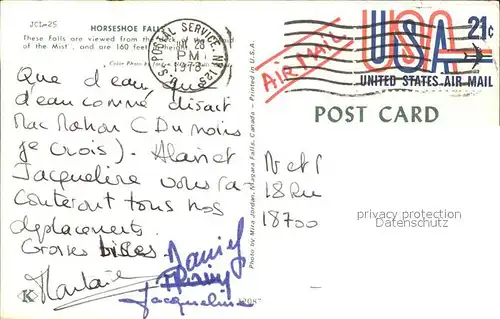 JCL-25
HORSESHOE FALLS
These Falls are viewed from the deck of
of the Mist', and are 160 feet
Color Photo
U.S. POSTAL SERVICE, N.Y.
28
PM
1973
AIR MAIL
USA 21¢
UNITED STATES AIR MAIL
POST CARD
Printed in U.S.A.
Mira Jordan, Niagara Falls, Canada
Que d'eau, que
d'eau comme disait
Mac Mahon (Du moins
je crois). Alain et
Jacqueline vous ra
conteront tous nos
déplacements.
Grosses bises.
Daniel
Jacqueline
K
M et
18 Ru
18700
privacy protection
Datenschutz